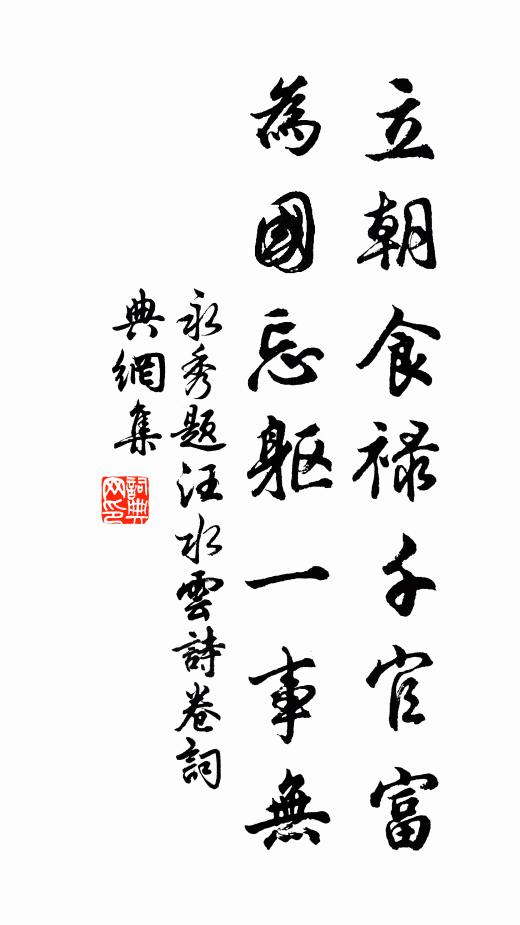 立朝食禄千官富
為國忘躯一事無
永秀题汪水雲詩卷詞
典網集
詞典网印